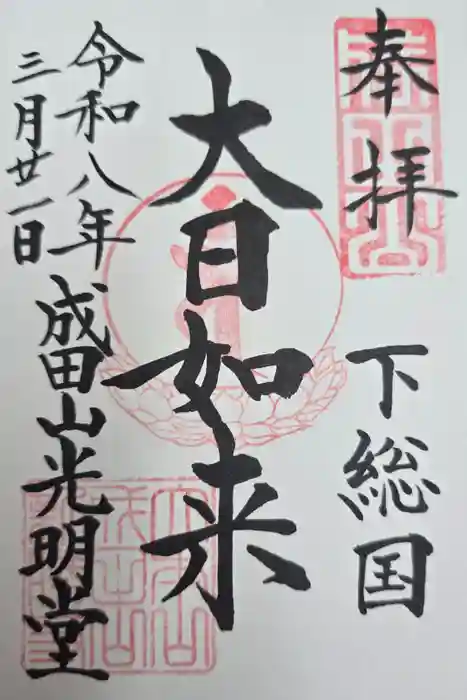 奉拝
下総国
大日如来
令和八年
三月廿一日
成田山光明堂